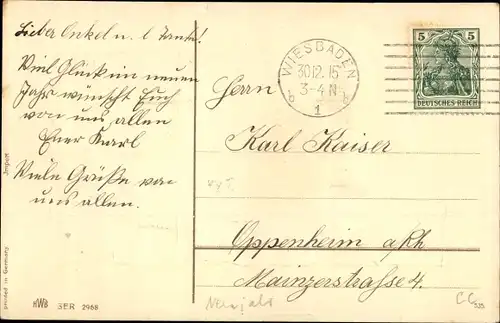 Lieber Onkel u. l Tante!
Viel Glück im neuen
Jahr wünscht Euch
von uns allen
Euer Karl
Viele Grüße von
uns allen.
WIESBADEN
30.12.15
3-4 N
b b
1
5 5
DEUTSCHES REICH
Herrn
Karl Kaiser
Oppenheim a/Rh
Mainzerstrasse 4.
Import
printed in Germany
HWB SER 2968
Neujahr
535